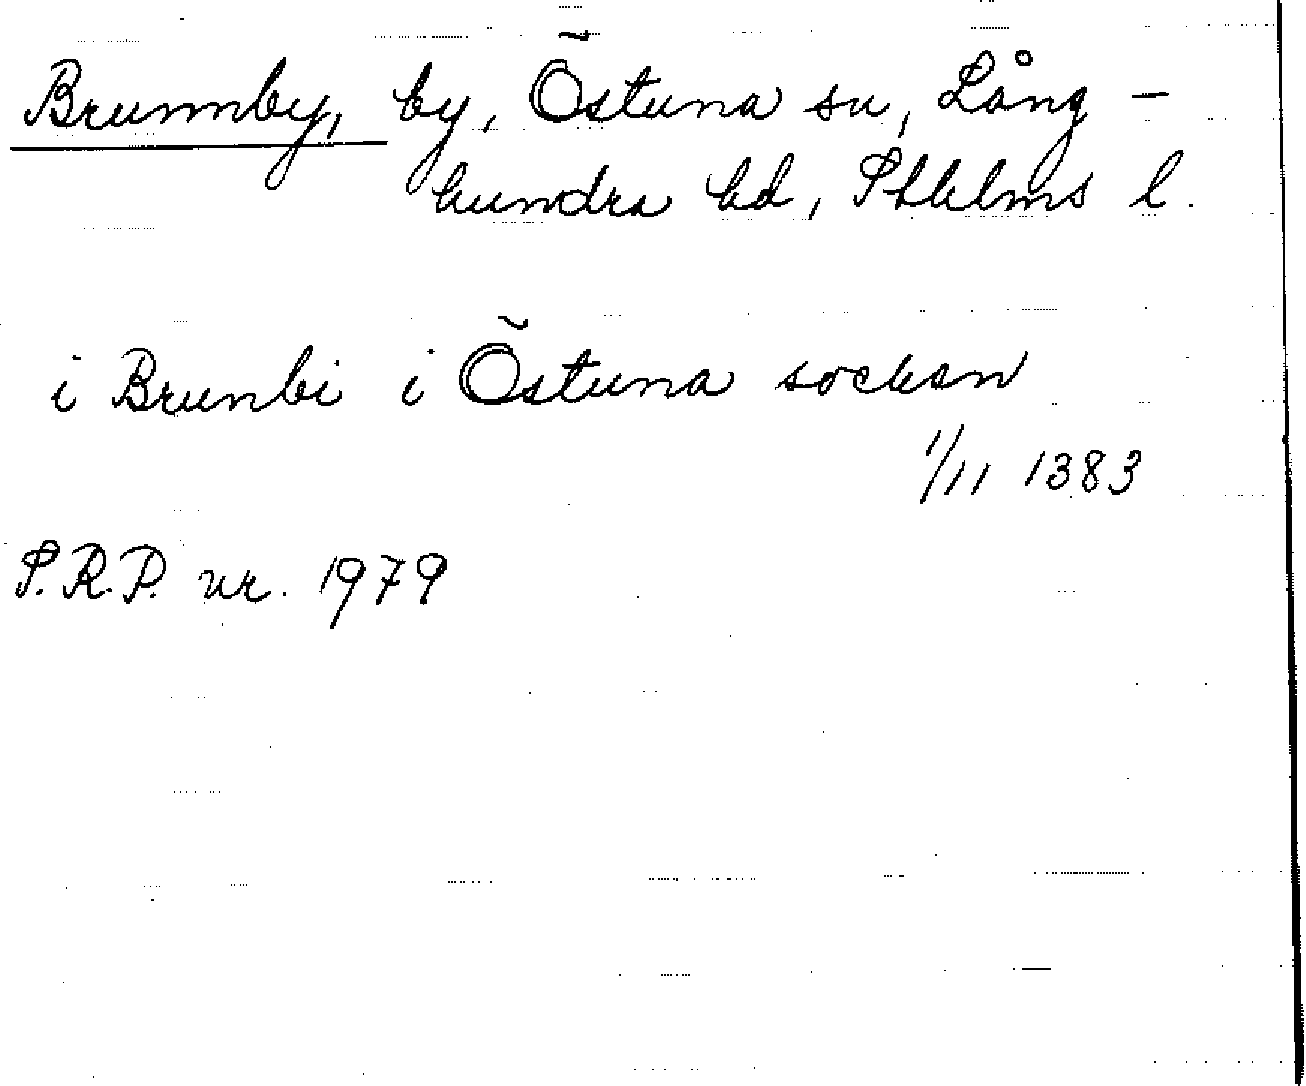 Brunnby, by, Östuna sn, Lång-
hundra hd, Sthlms l.
i Brunbi i Östuna sockan
1/11 1383
S.R.P. nr. 1979